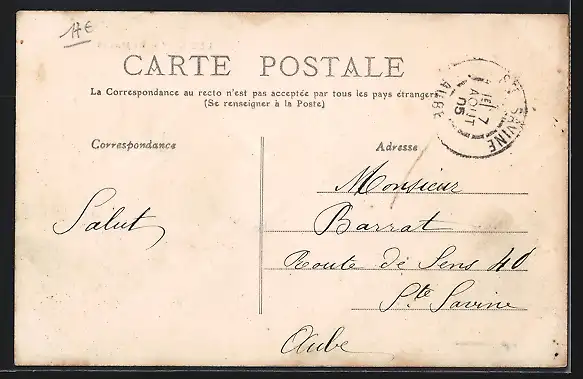 11€
CARTE POSTALE
La Correspondance au recto n'est pas acceptée par tous les pays étrangers
(Se renseigner à la Poste)
STE SAVINE
7
AOUT
05
AUBE
Correspondance
Adresse
Salut
Monsieur
Barrat
Route de Sens 40
Ste Savine
Aube